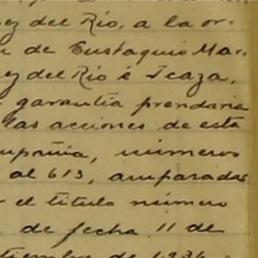 ez del Río, a la or-
n de Eustaquio Már-
ez del Río é Icaza,
garantía prendaria
las acciones de esta
ompañía, números
al 613, amparadas
r el título número
de fecha 11 de
tiembre de 1936